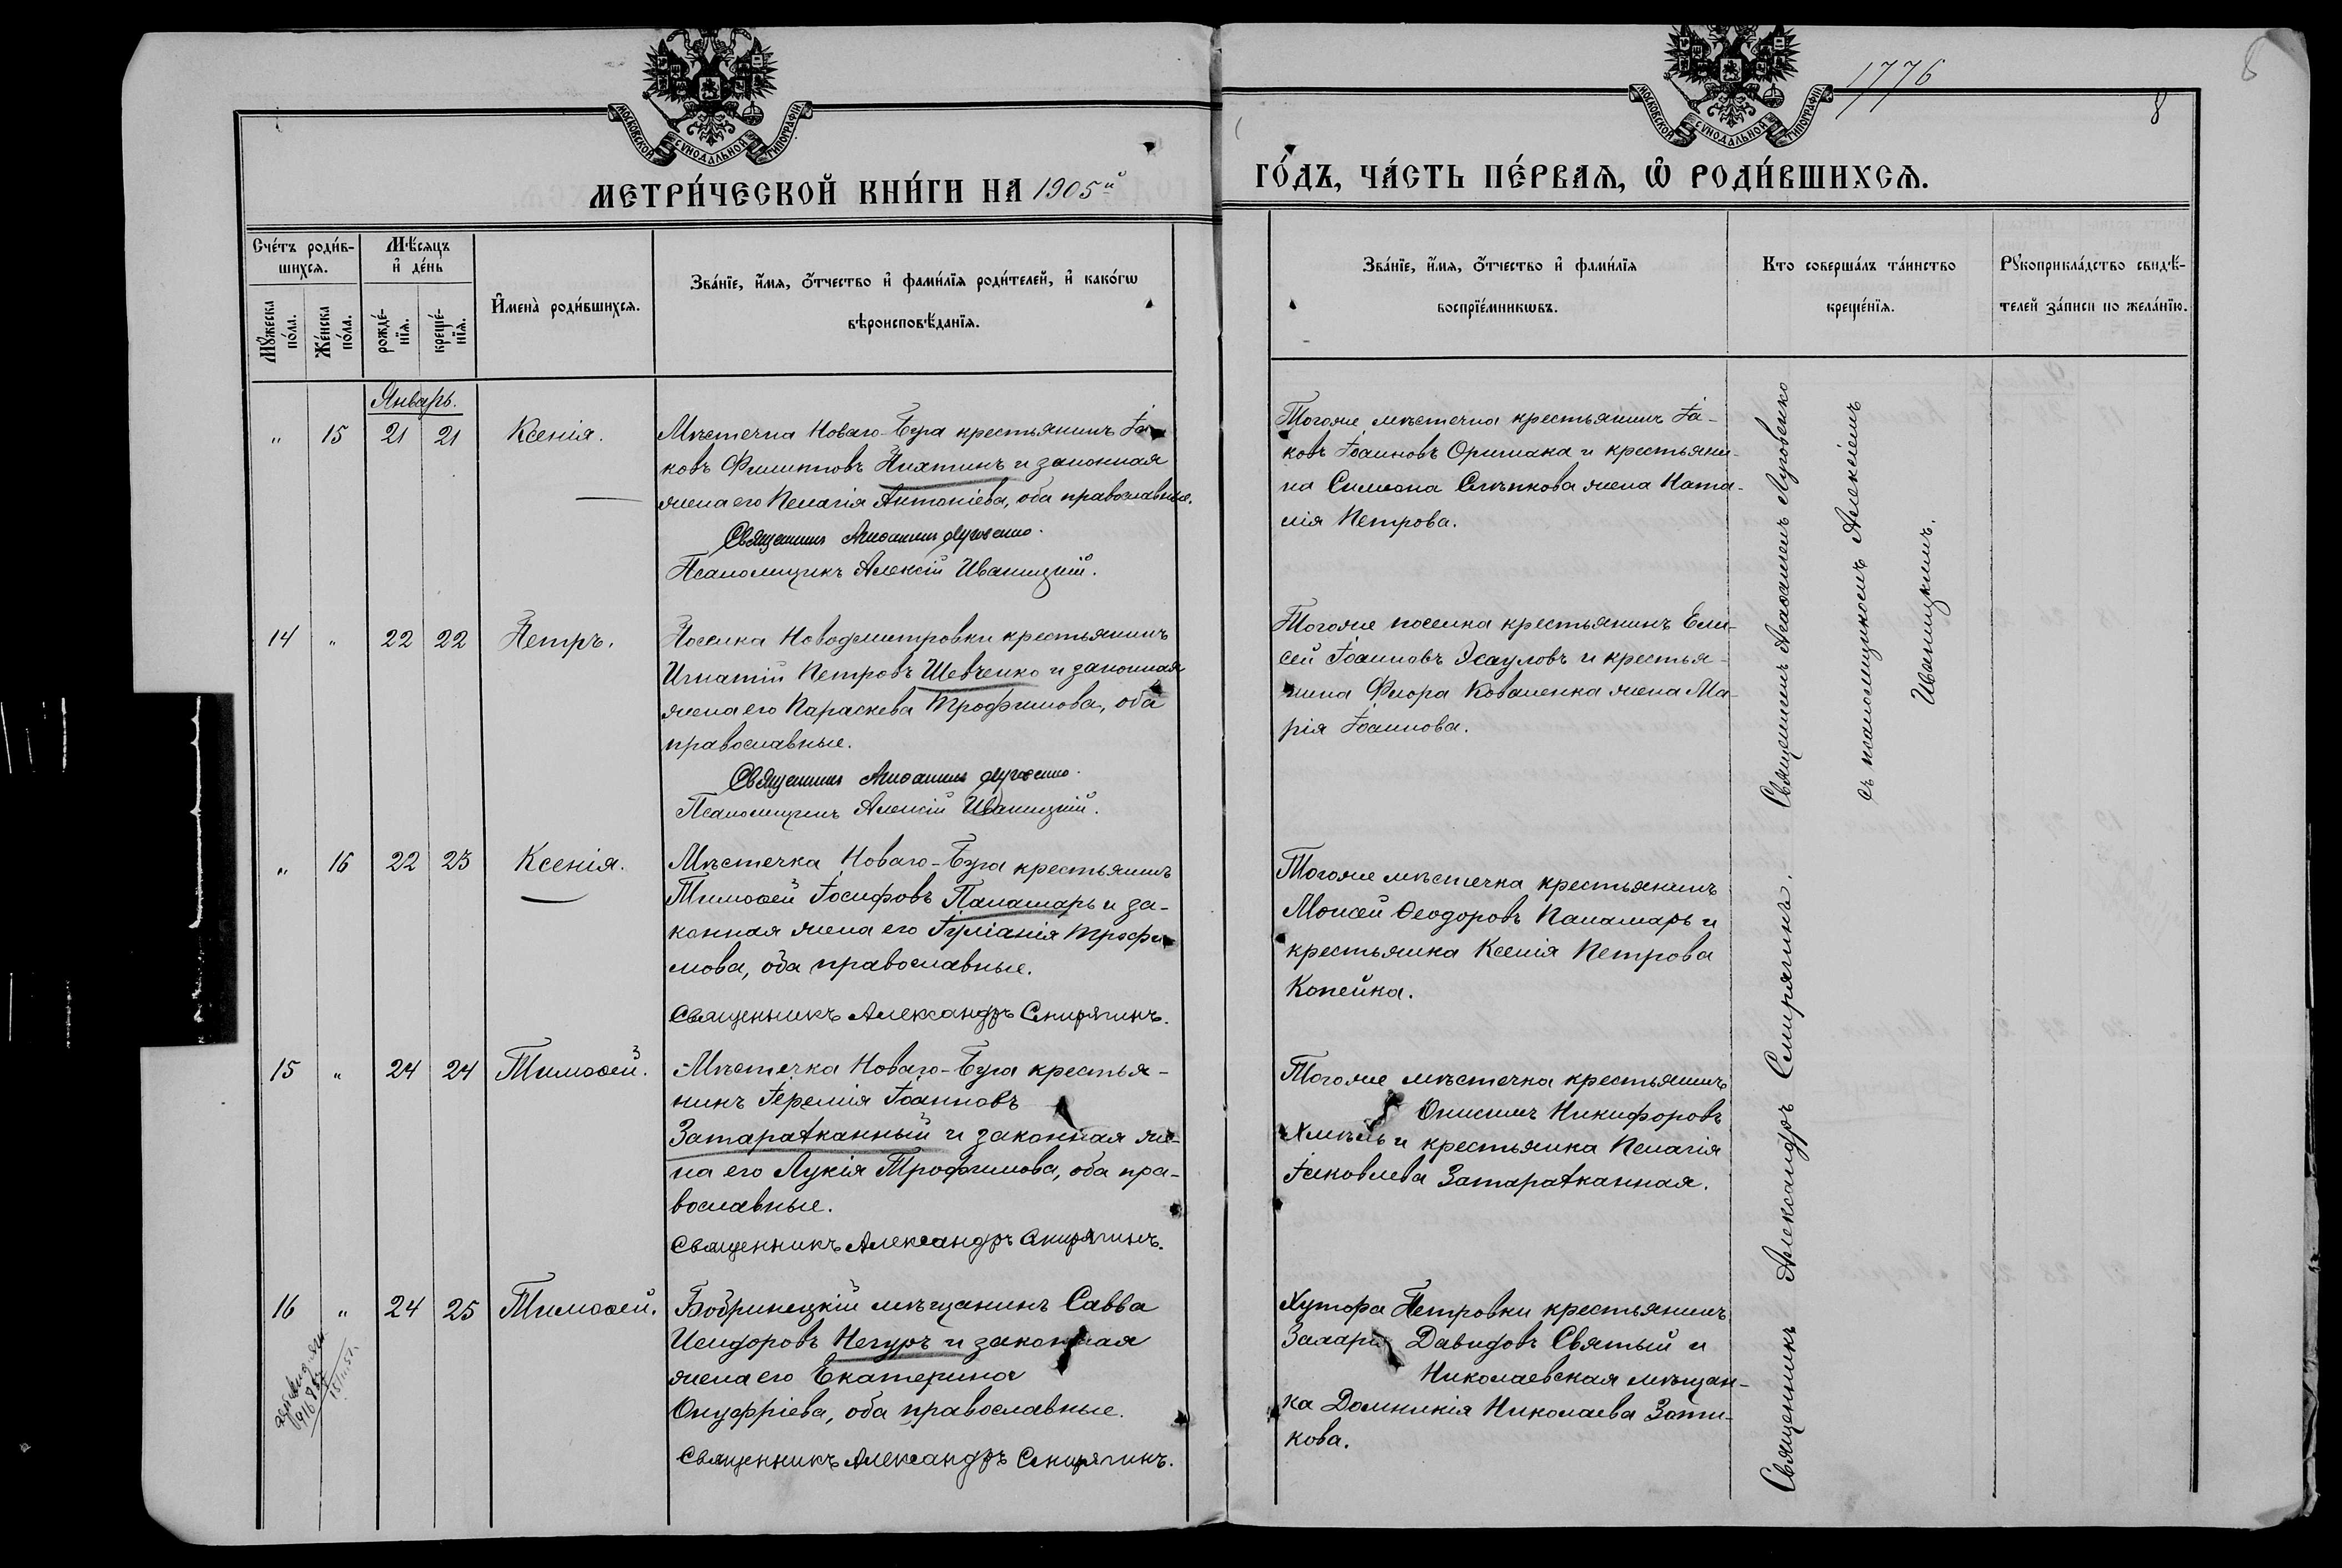 МОСКОВСКОЙ СѴНОДАЛЬНОЙ ТИПОГРАФІИ
МОСКОВСКОЙ СѴНОДАЛЬНОЙ ТИПОГРАФІИ
1776
8
8
МЕТРИ́ЧЕСКОЙ КНИ́ГИ НА 1905й
ГО́ДЪ, ЧА́СТЬ ПЕ́РВАѦ, Ѽ РОДИ́ВШИХСѦ.
Сче́тъ роди́в-
шихсѧ.
Мꙋ́жеска по́ла.
Же́нска по́ла.
Мѣ́сѧцъ
и҆ де́нь
рожде́-
нїѧ.
креще́-
нїѧ.
И҆мена̀ роди́вшихсѧ.
Зва́нїе, и҆́мѧ, ѻ҆́тчество и҆ фами́лїѧ роди́телей, и҆ како́гѡ
вѣроисповѣ́данїѧ.
Зва́нїе, и҆́мѧ, ѻ҆́тчество и҆ фами́лїѧ
воспрїе́мникѡвъ.
Кто соверша́лъ та́инство
креще́нїѧ.
Рꙋкоприкла́дство свидѣ́-
телей за́писи по жела́нїю.
Январь.
" 15 21 21 Ксенія.
Мѣстечка Новаго-Буга крестьянинъ Іа-
ковъ Филипповъ Пихтинъ и законная
жена его Пелагія Антоніева, оба православные.
Священникъ Агаѳангелъ Луговенко.
Псаломщикъ Алексій Иваницкій.
Тогоже мѣстечка крестьянинъ Іа-
ковъ Іоанновъ Оришака и крестьяни-
на Симеона Слѣпкова жена Ната-
лія Петрова.
14 " 22 22 Петръ.
Поселка Новодмитровки крестьянинъ
Игнатій Петровъ Шевченко и законная
жена его Параскева Трофимова, оба
православные.
Священникъ Агаѳангелъ Луговенко.
Псаломщикъ Алексій Иваницкій.
Тогоже поселка крестьянинъ Ели-
сей Іоанновъ Эсауловъ и крестья-
нина Флора Коваленка жена Ма-
рія Іоаннова.
Священникъ Агаѳангелъ Луговенко
съ псаломщикомъ Алексіемъ
Иваницкимъ.
" 16 22 23 Ксенія.
Мѣстечка Новаго-Буга крестьянинъ
Тимоѳей Іосифовъ Паламарь и за-
конная жена его Іуліанія Трофи-
мова, оба православные.
Священникъ Александръ Смирягинъ.
Тогоже мѣстечка крестьянинъ
Моисей Ѳеодоровъ Паламарь и
крестьянка Ксенія Петрова
Копейка.
15 " 24 24 Тимоѳей.
Мѣстечка Новаго-Буга крестья-
нинъ Іеремія Іоанновъ
Затаратканный и законная же-
на его Лукія Трофимова, оба пра-
вославные.
Священникъ Александръ Смирягинъ.
Тогоже мѣстечка крестьянинъ
Онисимъ Никифоровъ
Хмѣль и крестьянка Пелагія
Іаковлева Затаратканная.
16 " 24 25 Тимоѳей.
Бобринецкій мѣщанинъ Савва
Исидоровъ Негуръ и законная
жена его Екатерина
Онуфріева, оба православные.
Священникъ Александръ Смирягинъ.
Хутора Петровки крестьянинъ
Захарій Давидовъ Святый и
Николаевская мѣщан-
ка Домникія Николаева Зати-
кова.
Священникъ Александръ Смирягинъ.